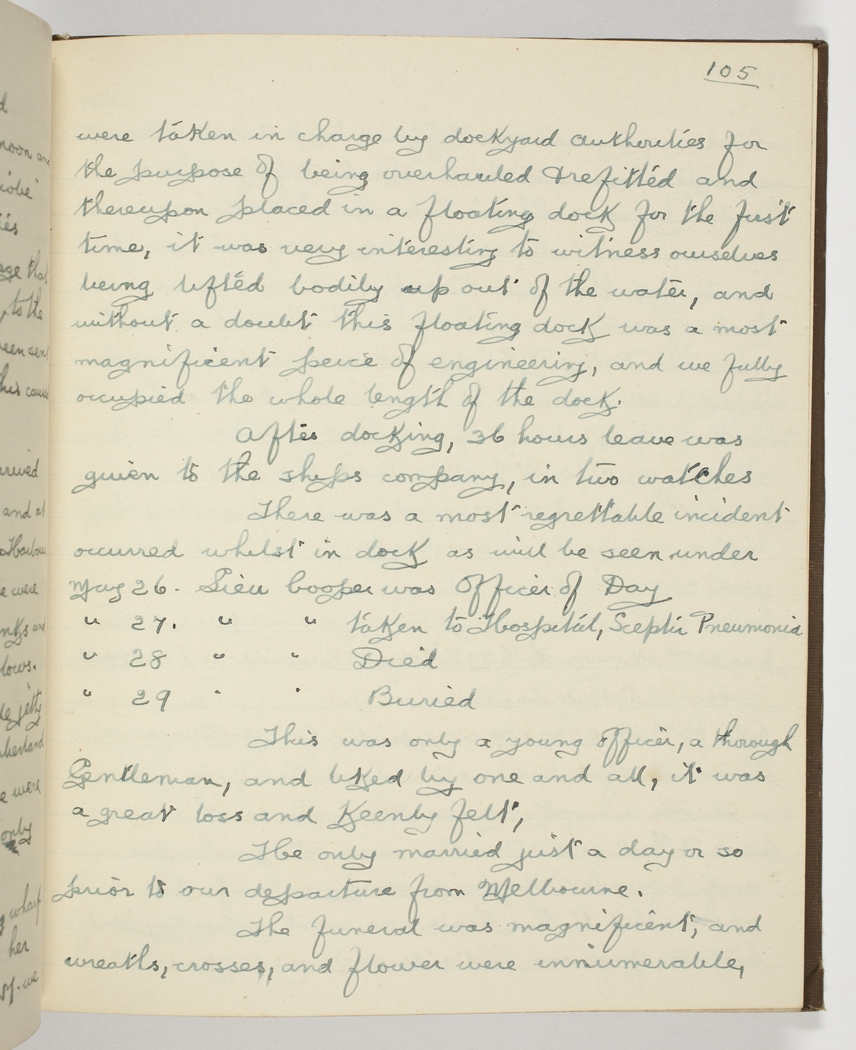 105
were taken in charge by dockyard authorities for
the purpose of being overhauled & refitted and
thereupon placed in a floating dock for the first
time, it was very interesting to witness ourselves
being lifted bodily up out of the water, and
without a doubt this floating dock was a most
magnificent peice of engineering, and we fully
occupied the whole length of the dock.
After docking, 36 hours leave was
given to the ships company, in two watches
There was a most regrettable incident
occurred whilst in dock as will be seen under
May 26. Lieu Cooper was Officer of Day
" 27. " " taken to Hospital, Sceptic Pneumonia
" 28 " " Died
" 29 " " Buried
This was only a young officer, a thorough
Gentleman, and liked by one and all, it was
a great loss and Keenly felt,
He only married just a day or so
prior to our departure from Melbourne.
The funeral was magnificent, and
wreaths, crosses, and flower were innumerable,
moon an
ties
age that
, to the
been sen
his caus
and at
Harbou
e were
lows.
e were
only
wharf
her